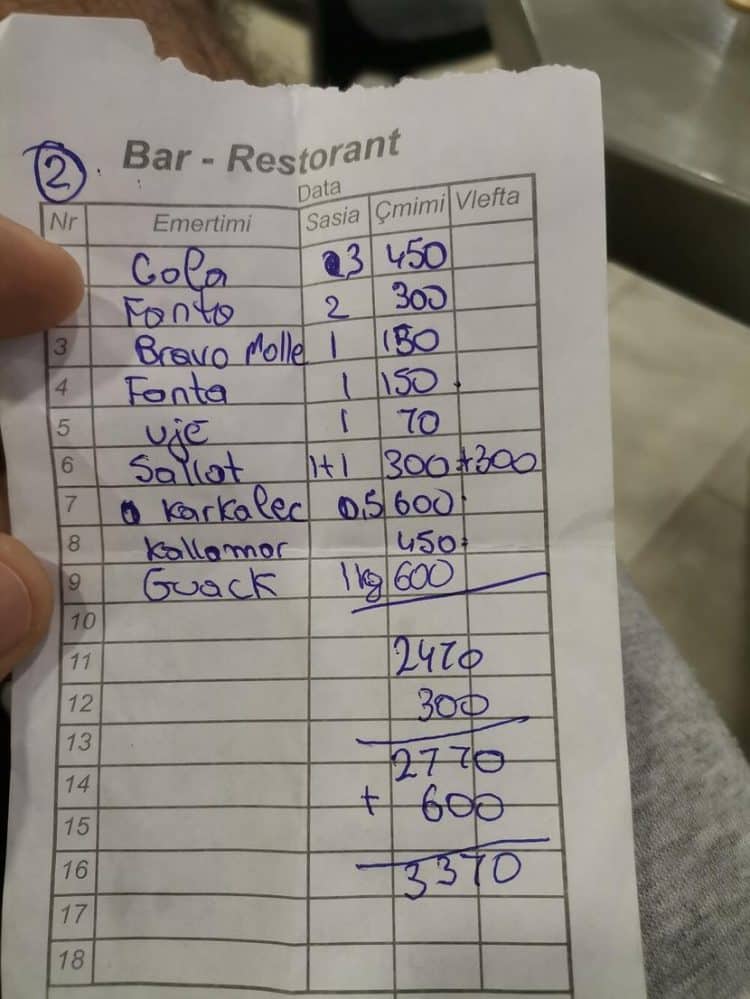 2
Bar - Restorant
Data
Nr Emertimi Sasia Çmimi Vlefta
Cola 3 450
Fonto 2 300
3 Bravo Molle 1 150
4 Fonta 1 150
5 ujë 1 70
6 Sallot 1+1 300+300
7 karkalec 0.5 600
8 kallamar 450
9 Guack 1kg 600
10
11 2470
12 300
13 2770
14 + 600
15
16 3370
17
18